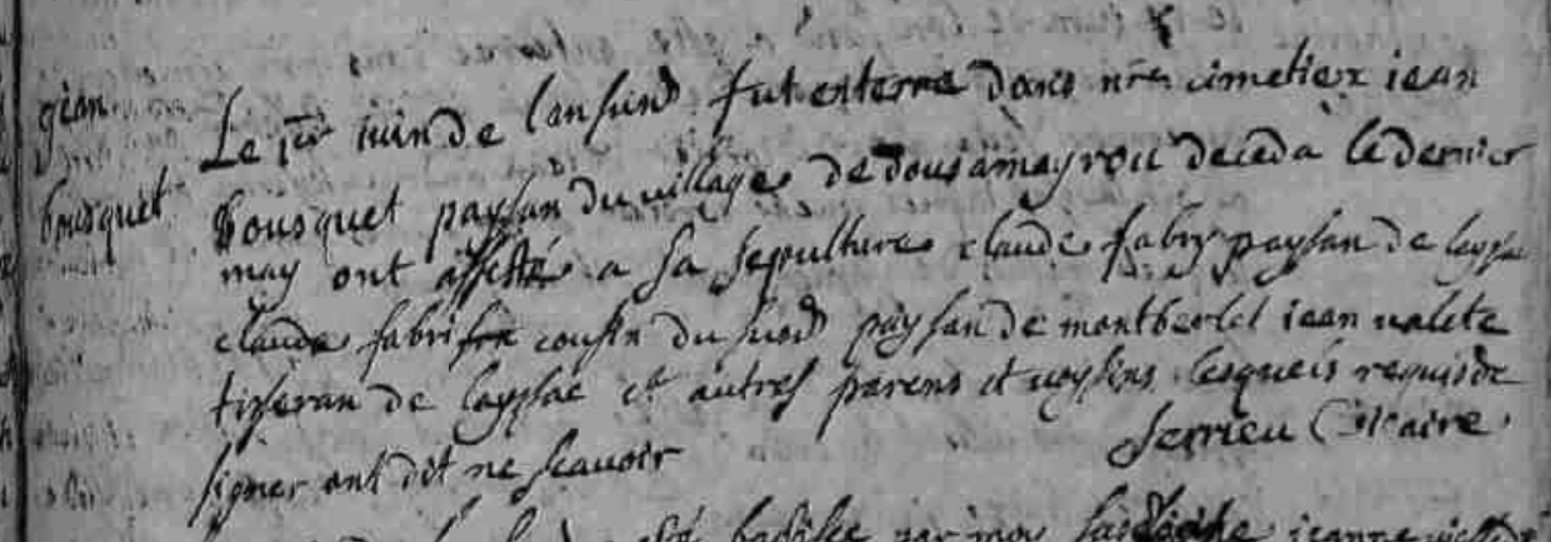 gian
bousquet
Le 1er iuin de lan susd fut enterre dans nre cimetiere iean
Bousquet paysan du village de dousamayrou deceda le dernier
may ont assisté a sa sepulture claude fabry paysan de layssac
claude fabri cousin du susd paysan de montberlet iean valete
tisseran de layssac et autres parens et voysins lesquels requis de
signer ont dit ne scavoir
Serrieu Vicaire